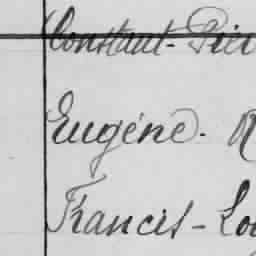 Constant-Pier
Eugéne.
Francis-Lou